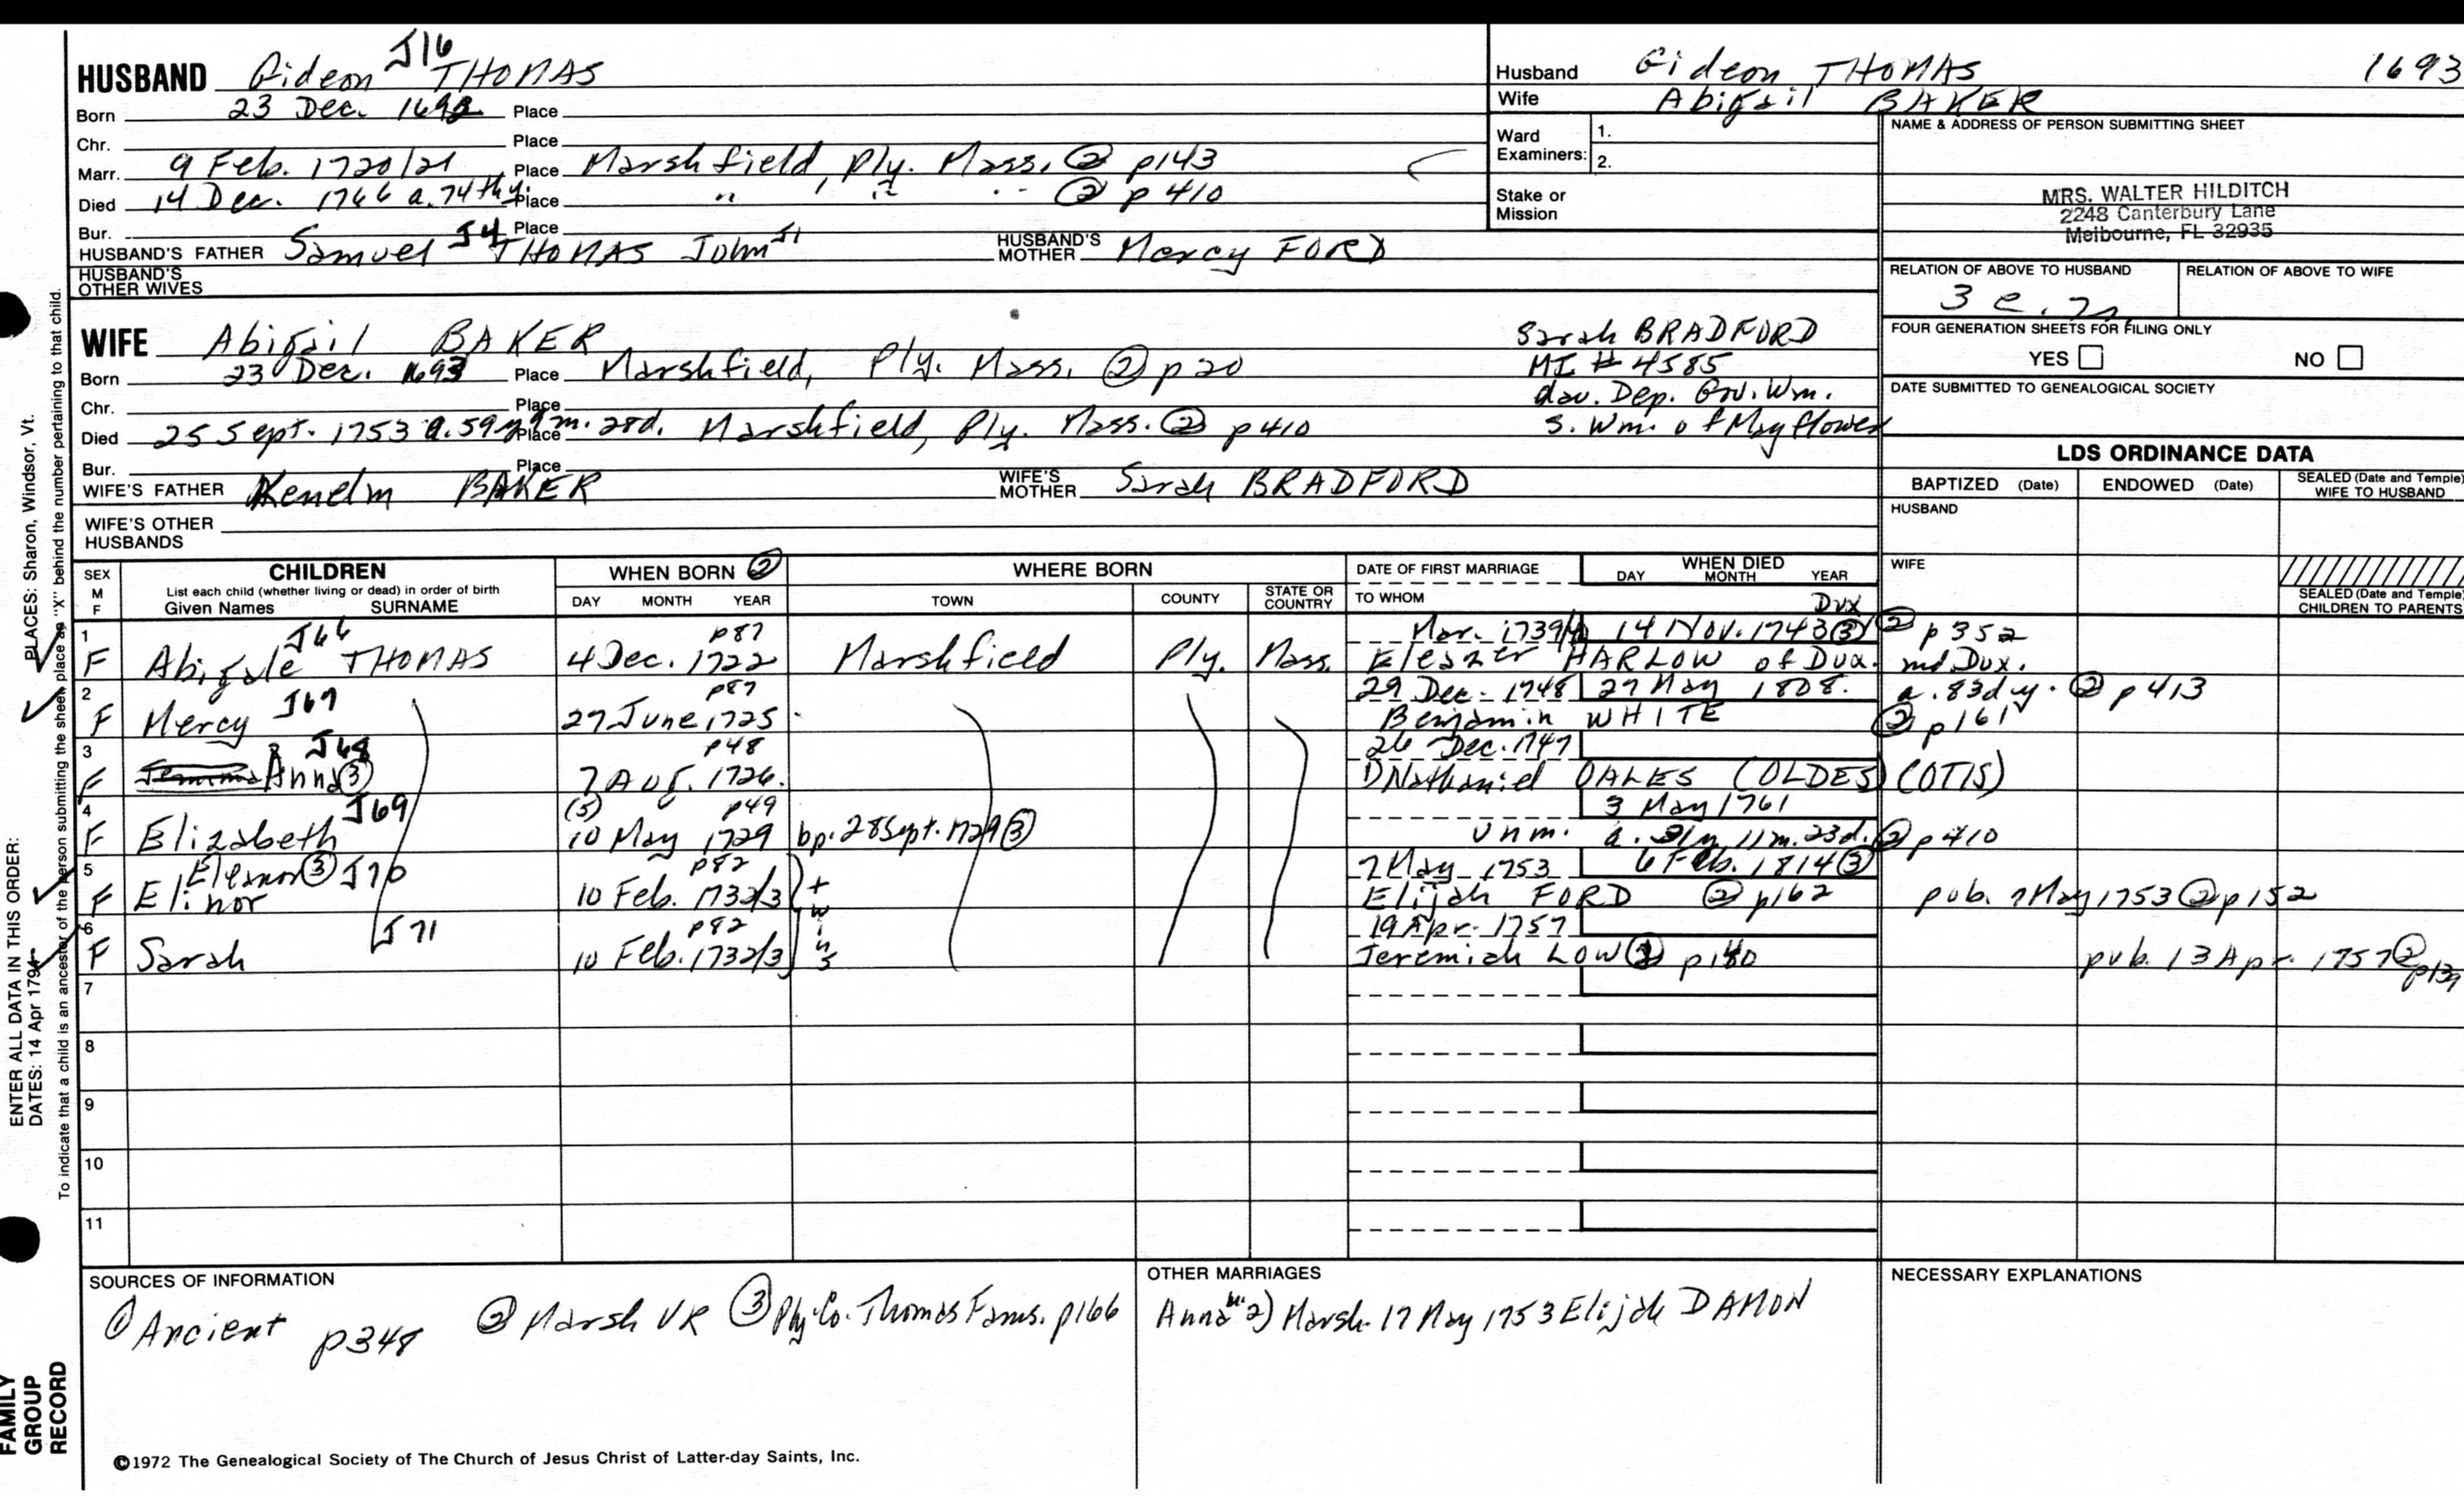 HUSBAND Gideon J16 THOMAS
Born 23 Dec. 1692 Place
Chr. Place
Marr. 9 Feb. 1720/21 Place Marshfield, Ply. Mass. ② p143
Died 14 Dec. 1766 a. 74th y. Place " , " " ② p410
Bur. Place
HUSBAND'S FATHER Samuel J4 THOMAS John J1 HUSBAND'S MOTHER Mercy FORD
HUSBAND'S OTHER WIVES
WIFE Abigail BAKER
Born 23 Dec. 1693 Place Marshfield, Ply. Mass. ② p20
Chr. Place
Died 25 Sept. 1753 a. 59y 9m. 28d. Place Marshfield, Ply. Mass. ② p410
Bur. Place
WIFE'S FATHER Kenelm BAKER WIFE'S MOTHER Sarah BRADFORD
WIFE'S OTHER HUSBANDS
Sarah BRADFORD
MI # 4585
dau. Dep. Gov. Wm.
s. Wm. of Mayflower
Husband Gideon THOMAS 1693
Wife Abigail BAKER
Ward Examiners: 1.
2.
Stake or Mission
NAME & ADDRESS OF PERSON SUBMITTING SHEET
MRS. WALTER HILDITCH
2248 Canterbury Lane
Melbourne, FL 32935
RELATION OF ABOVE TO HUSBAND RELATION OF ABOVE TO WIFE
FOUR GENERATION SHEETS FOR FILING ONLY
YES NO
DATE SUBMITTED TO GENEALOGICAL SOCIETY
LDS ORDINANCE DATA
BAPTIZED (Date) ENDOWED (Date) SEALED (Date and Temple) WIFE TO HUSBAND
HUSBAND
WIFE
SEALED (Date and Temple) CHILDREN TO PARENTS
SEX M F CHILDREN WHEN BORN ② WHERE BORN DATE OF FIRST MARRIAGE WHEN DIED
List each child (whether living or dead) in order of birth
Given Names SURNAME DAY MONTH YEAR TOWN COUNTY STATE OR COUNTRY TO WHOM DAY MONTH YEAR
Dux
1 J66 p87 Mar. 1739/4 14 Nov. 1743 ③ ② p352
F Abigale THOMAS 4 Dec. 1722 Marshfield Ply. Mass. Eleazer HARLOW of Dux. md Dux.
2 J67 p87 29 Dec. 1748 27 May 1808. a. 83d y. ② p413
F Mercy 27 June 1725 Benjamin WHITE ② p161
3 J68 p48 26 Dec. 1747
F Anna ③ 7 Aug. 1726. Nathaniel OALES (OLDES) (OTIS)
4 J69 (5) p49 3 May 1761
F Elizabeth 10 May 1729 bp. 28 Sept. 1729 ③ unm. a. 31y. 11m. 23d. ② p410
5 Eleanor ③ J70 p82 7 May 1753 6 Feb. 1814 ③
F Elinor 10 Feb. 1732/3 twins Elijah FORD ② p162 pub. 7 May 1753 ② p152
6 J71 p82 19 Apr. 1757
F Sarah 10 Feb. 1732/3 Jeremiah LOW p180 pub. 13 Apr. 1757 ② p139
7
8
9
10
11
SOURCES OF INFORMATION
① Ancient p348 ② Marsh VR ③ Ply. Co. Thomas Fams. p166
OTHER MARRIAGES
Anna m. 2) Marsh. 17 May 1753 Elijah DAMON
NECESSARY EXPLANATIONS
©1972 The Genealogical Society of The Church of Jesus Christ of Latter-day Saints, Inc.
FAMILY GROUP RECORD
ENTER ALL DATA IN THIS ORDER:
DATES: 14 Apr 1794
PLACES: Sharon, Windsor, Vt.
To indicate that a child is an ancestor of the person submitting the sheet, place an "X" behind the number pertaining to that child.